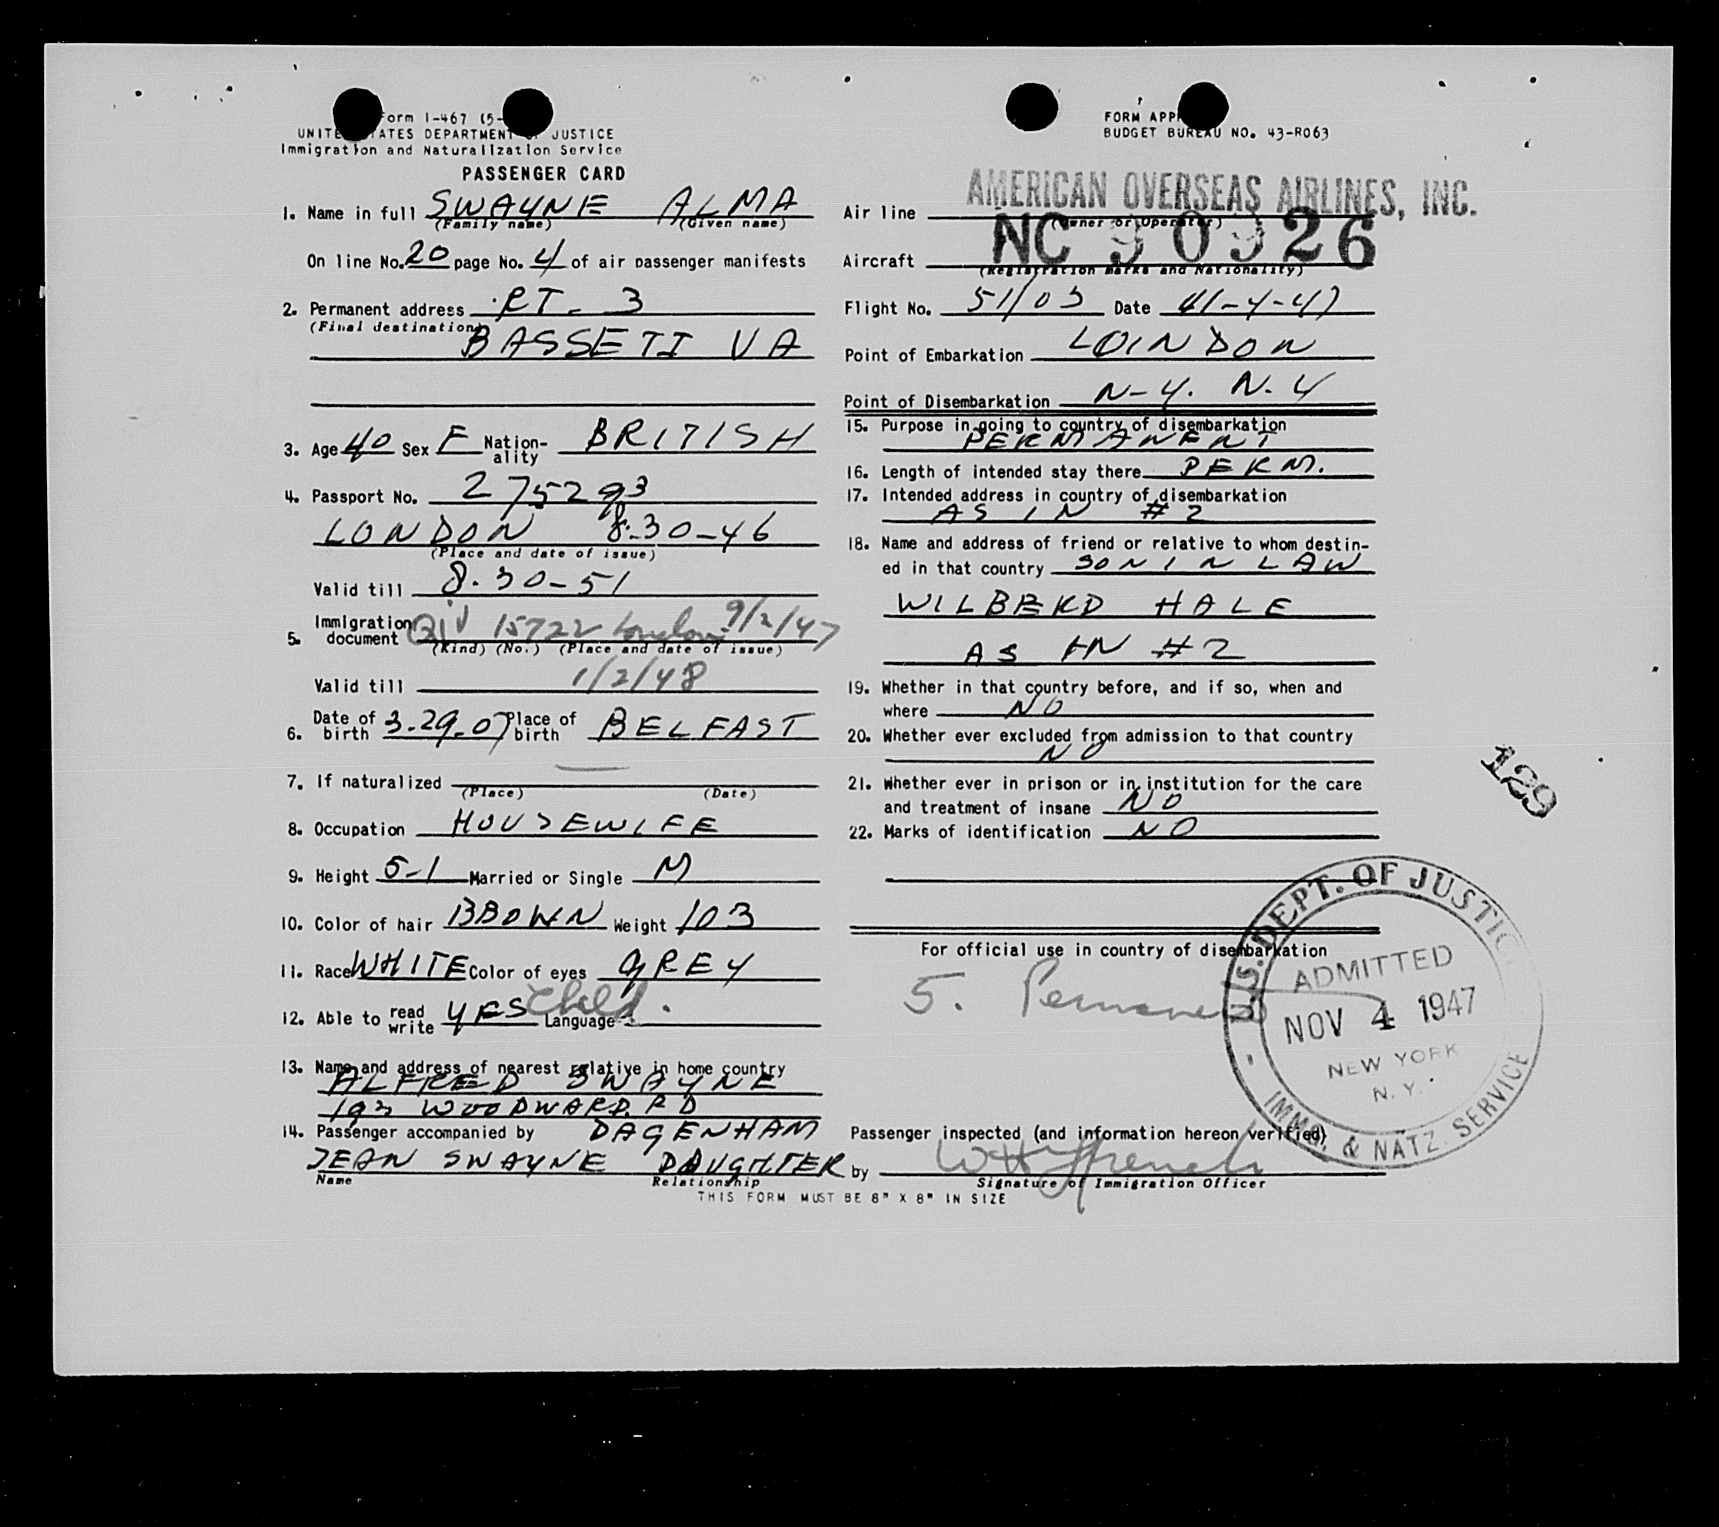 Form I-467 (5-
UNITED STATES DEPARTMENT OF JUSTICE
Immigration and Naturalization Service
PASSENGER CARD
1. Name in full SWAYNE ALMA
(Family name) (Given name)
On line No. 20 page No. 4 of air passenger manifests
2. Permanent address RT- 3
(Final destination)
BASSETT VA
3. Age 40 Sex F Nation-ality BRITISH
4. Passport No. 275293
LONDON 8-30-46
(Place and date of issue)
Valid till 8-30-51
5. Immigration document QIV 15722 London 9/2/47
(Kind) (No.) (Place and date of issue)
Valid till 1/2/48
6. Date of birth 3-29-07 Place of birth BELFAST
7. If naturalized —
(Place) (Date)
8. Occupation HOUSEWIFE
9. Height 5-1 Married or Single M
10. Color of hair BROWN Weight 103
11. Race WHITE Color of eyes GREY
12. Able to read write YES Language
13. Name and address of nearest relative in home country
ALFRED SWAYNE
193 WOODWARD RD
14. Passenger accompanied by DAGENHAM
JEAN SWAYNE DAUGHTER
Name Relationship
THIS FORM MUST BE 8" X 8" IN SIZE
FORM APP
BUDGET BUREAU NO. 43-R063
Air line AMERICAN OVERSEAS AIRLINES, INC.
(Owner or Operator)
Aircraft NC 90926
(Registration marks and Nationality)
Flight No. 51/03 Date 11-4-47
Point of Embarkation LOINDON
Point of Disembarkation N-Y. N.Y
15. Purpose in going to country of disembarkation
PERMANENT
16. Length of intended stay there PERM.
17. Intended address in country of disembarkation
AS IN #2
18. Name and address of friend or relative to whom destin-
ed in that country SON IN LAW
WILBERD HALE
AS IN #2
19. Whether in that country before, and if so, when and
where NO
20. Whether ever excluded from admission to that country
NO
21. Whether ever in prison or in institution for the care
and treatment of insane NO
22. Marks of identification NO
129
For official use in country of disembarkation
5. Permanent
U.S. DEPT. OF JUSTICE
ADMITTED
NOV 4 1947
NEW YORK
N.Y.
IMM. & NATZ. SERVICE
Passenger inspected (and information hereon verified)
by
Signature of Immigration Officer